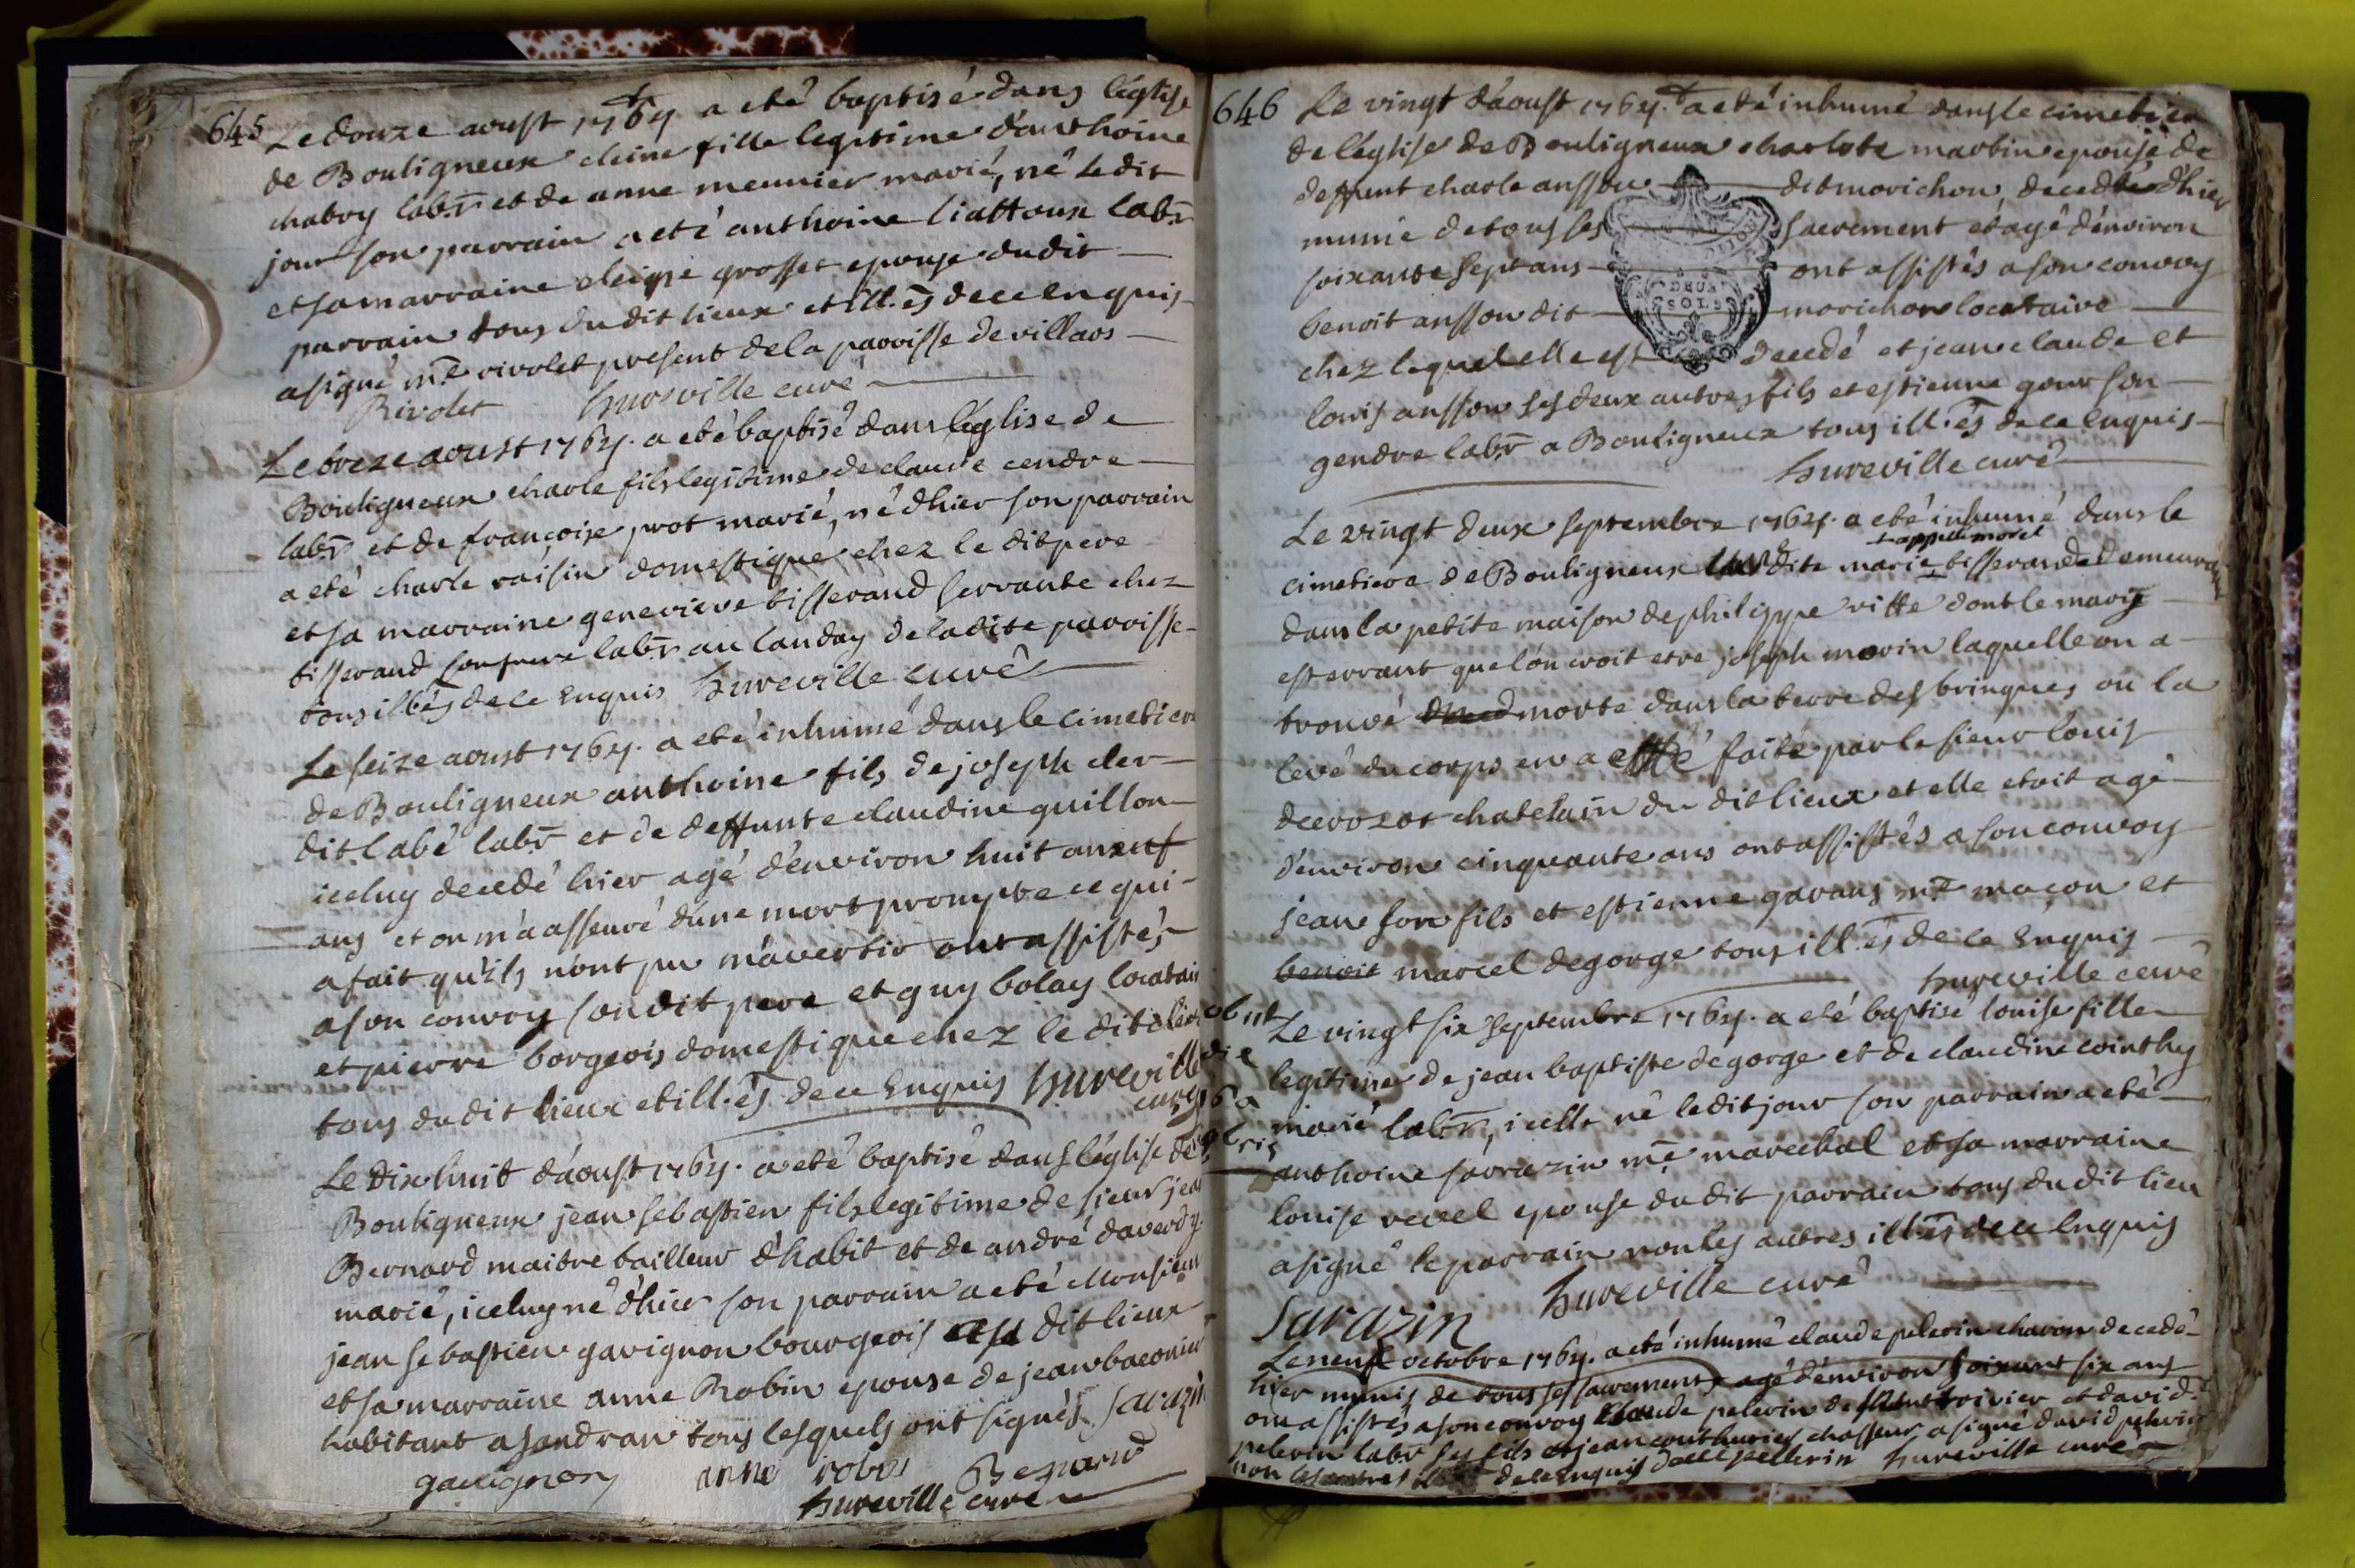 645
Le douze aoust 1764 a eté baptisé dans l'église
de Bouligneux cleine fille legitime d'anthoine
chabry labr et de anne meunier marié, né le dit
jour son parrain a eté anthoine liattoux labr
et sa marraine cleine grosset epouse du dit
parrain tous du dit lieux et ill.és de ce enquis
a signé mre rivolet present de la parroisse de villars
Rivolet hureville curé
Le treze aoust 1764. a eté baptisé dans l'église de
Bouligneux charle fils legitime de claude cendre
labr et de françoise prot marié, né d'hier son parrain
a eté charle raisin domestique chez le dit pere
et sa marraine genevieve tisserand servante chez
tisserand son frere labr au landay de la dite parroisse
tous illés de ce Enquis hureville curé
Le seize aoust 1764. a eté inhumé dans le cimetiere
de Bouligneux anthoine fils de joseph cler
dit labé labr et de deffunte claudine guillon
iceluy decedé hier agé d'environ huit a neuf
ans et on m'a asseuré d'une mort prompte ce qui
a fait qu'ils n'ont pu m'avertir ont assistés
a son convoy son dit pere et guy bolay locatair
et pierre borgeois domestique chez le dit cler
tous du dit lieux et ill.és de ce Enquis hureville
curé
Le dix huit d'aoust 1764. a eté baptisé dans l'église de
Bouligneux jean sebastien fils legitime de sieur jean
Bernard maitre tailleur d'habit et de andré daverdy
marié, iceluy né d'hier son parrain a eté Monsieur
jean sebastien gavignon bourgeois dit lieux
et sa marraine anne Robin epouse de jean baconin
habitant a sandran tous lesquels ont signés Sarazin
gavignon anne robin Bernard
hureville curé
646
Le vingt d'aoust 1764. a eté inhumé dans le cimetiere
de l'église de Bouligneux charlote martin epouse de
deffunt charle ansson dit morichon decedée d'hier
munie de tous ses sacrement et agé d'environ
soixante sept ans ont assistés a son convoy
benoit ansson dit morichon locataire
chez lequel elle est decedé et jean claude et
louis ansson ses deux autres fils et estienne gour son
gendre labr a Bouligneux tous ill.és de ce Enquis
hureville curé
DEUX
SOLS
Le vingt deux septembre 1764. a eté inhumé dans le
appellé morel
cimetiere de Bouligneux dite marie tisserande demeurante
dans la petite maison de philippe vitte dont le mary
est errant que l'on croit etre joseph morin laquelle on a
trouvé morte dans la terre des bringues ou la
levé du corps en a esté faite par le sieur louis
decrozot chatelain du dit lieux et elle etoit agé
d'environ cinquante ans ont assistés a son convoy
jean son fils et estienne gavans mre maçon et
benoit marcel degorge tous ill.és de ce Enquis
hureville curé
Le vingt six septembre 1764. a eté baptisé louise fille
legitime de jean baptiste degorge et de claudine cointhy
marié labr, icelle né le dit jour son parrain a eté
anthoine sarrazin mre marechal et sa marraine
louise revel epouse du dit parrain tous du dit lieu
a signé le parrain non les autres illés de ce Enquis
Sarazin hureville curé
obiit
die
Le neuf octobre 1764. a eté inhumé claude pelerin charon decedé
hier munis de tous ses sacrements agé d'environ soixant six ans
ont assistés a son convoy claude pelerin de st trivier et david
pelerin labr ses fils et jean couthurier chasseur a signé david pelerin
non les autres de ce Enquis pellerin hureville curé